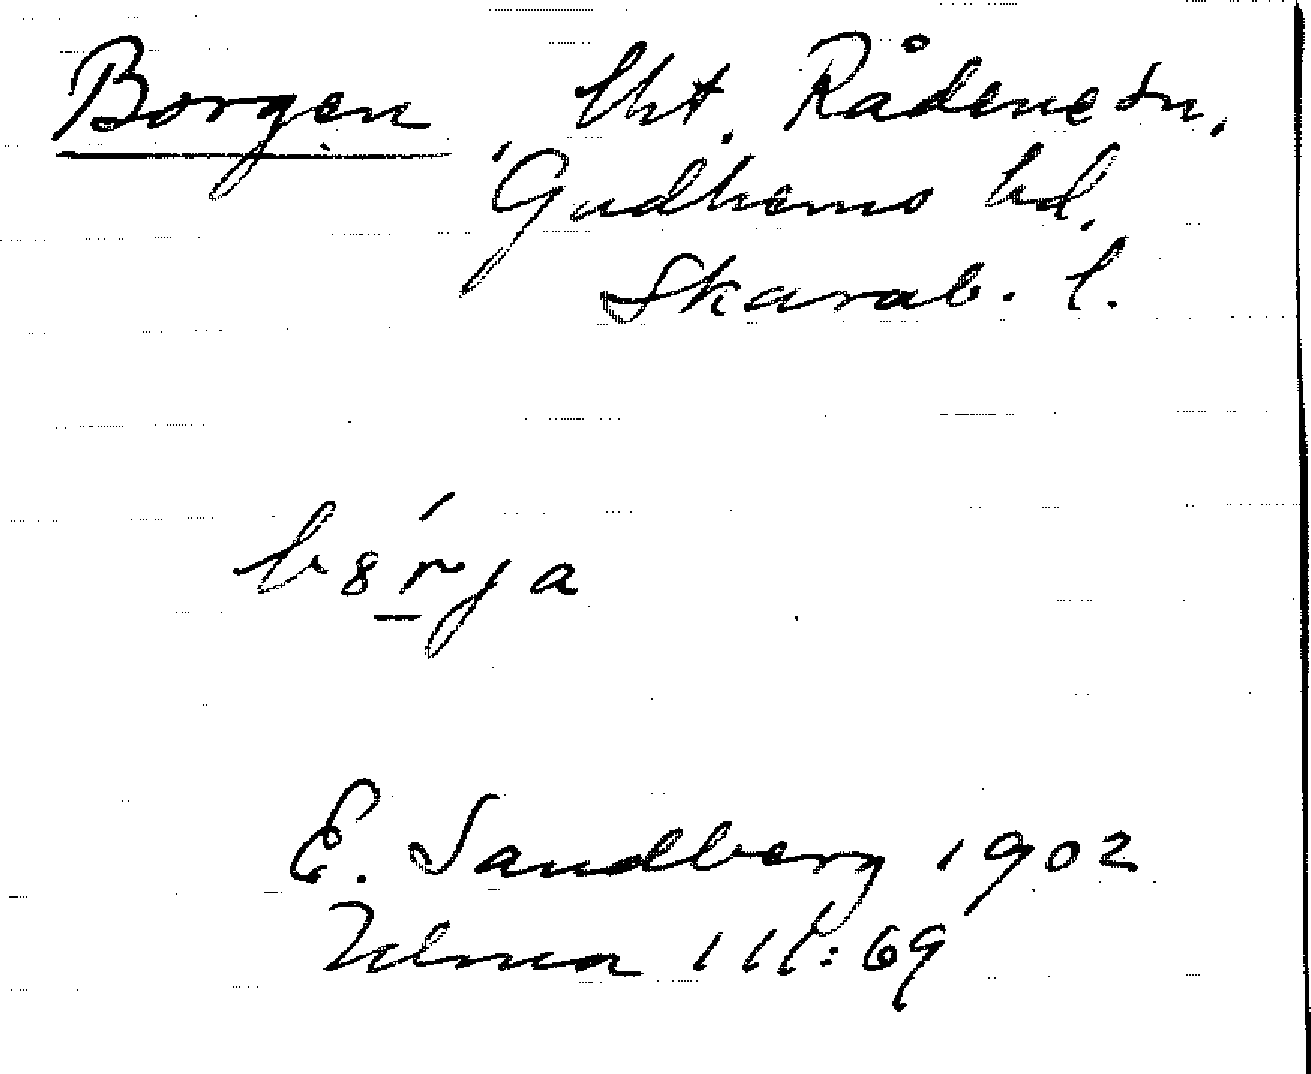 Borgen lht. Rådene sn.
Gudhems hd.
Skarab. l.
b8rja
E. Sandberg 1902
Ulma 111:69